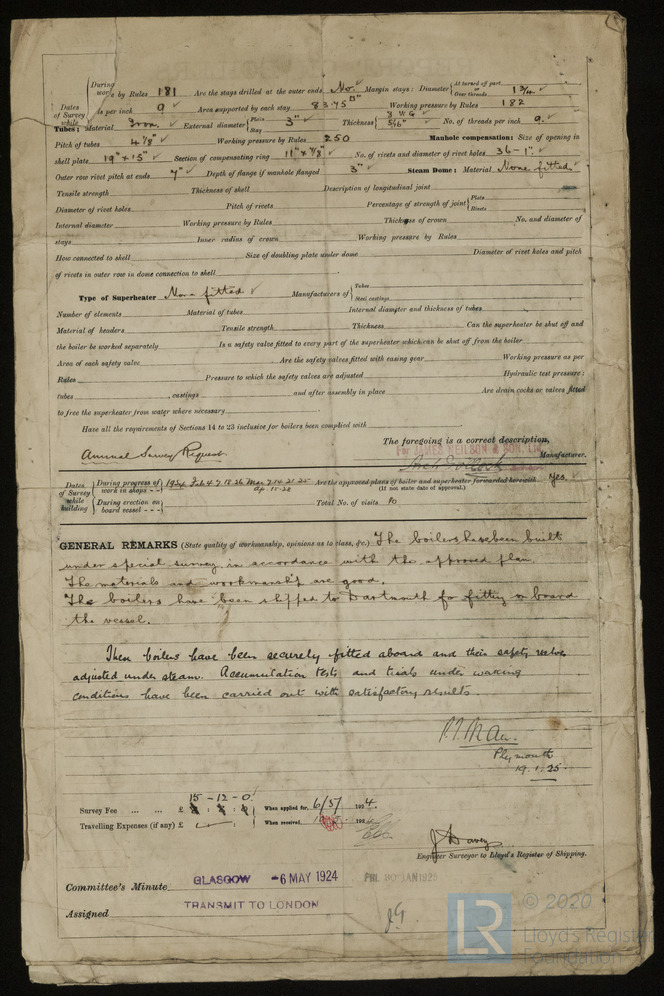 During
work by Rules 181 Are the stays drilled at the outer ends No. Margin stays: Diameter { At turned off part, Over threads 1 3/4"
Dates of Survey while
ds per inch 9 Area supported by each stay 83.75□" Working pressure by Rules 182
Tubes: Material Iron. External diameter { Plain Stay 3" Thickness { 8 WG 5/16" No. of threads per inch 9.
Pitch of tubes 4 1/8" Working pressure by Rules 250 Manhole compensation: Size of opening in
shell plate 19" x 15" Section of compensating ring 11" x 7/8" No. of rivets and diameter of rivet holes 36 - 1"
Outer row rivet pitch at ends 7" Depth of flange if manhole flanged 3" Steam Dome: Material None fitted
Tensile strength Thickness of shell Description of longitudinal joint
Diameter of rivet holes Pitch of rivets Percentage of strength of joint { Plate Rivets
Internal diameter Working pressure by Rules Thickness of crown No. and diameter of
stays Inner radius of crown Working pressure by Rules
How connected to shell Size of doubling plate under dome Diameter of rivet holes and pitch
of rivets in outer row in dome connection to shell
Type of Superheater None fitted Manufacturers of { Tubes Steel castings
Number of elements Material of tubes Internal diameter and thickness of tubes
Material of headers Tensile strength Thickness Can the superheater be shut off and
the boiler be worked separately Is a safety valve fitted to every part of the superheater which can be shut off from the boiler
Area of each safety valve Are the safety valves fitted with easing gear Working pressure as per
Rules Pressure to which the safety valves are adjusted Hydraulic test pressure:
tubes , castings and after assembly in place Are drain cocks or valves fitted
to free the superheater from water where necessary
Have all the requirements of Sections 14 to 23 inclusive for boilers been complied with
The foregoing is a correct description,
Annual Survey Request.
For JAMES NEILSON & SON, LTD.
Manufacturer.
Dates of Survey while building { During progress of work in shops - - 1924 Feb 4 7 13 26 Mar 7 14 21 25 Ap. 11 - 28 Are the approved plans of boiler and superheater forwarded herewith Yes.
(If not state date of approval.)
During erection on board vessel - - - Total No. of visits 10
GENERAL REMARKS (State quality of workmanship, opinions as to class, &c.) The boilers have been built
under special survey in accordance with the approved plan.
The materials and workmanship are good.
The boilers have been shipped to Dartmouth for fitting on board
the vessel.
These boilers have been securely fitted aboard and their safety valves
adjusted under steam. Accumulation tests and trials under working
conditions have been carried out with satisfactory results.
Plymouth
19.1.25.
15 - 12 - 0
Survey Fee ... ... £ : : When applied for, 6/5/ 1924.
Travelling Expenses (if any) £ When received, 192
J Davey
Engineer Surveyor to Lloyd's Register of Shipping.
Committee's Minute GLASGOW -6 MAY 1924 FRI. 30 JAN 1925
Assigned TRANSMIT TO LONDON
LR © 2020
Lloyd's Register
Foundation